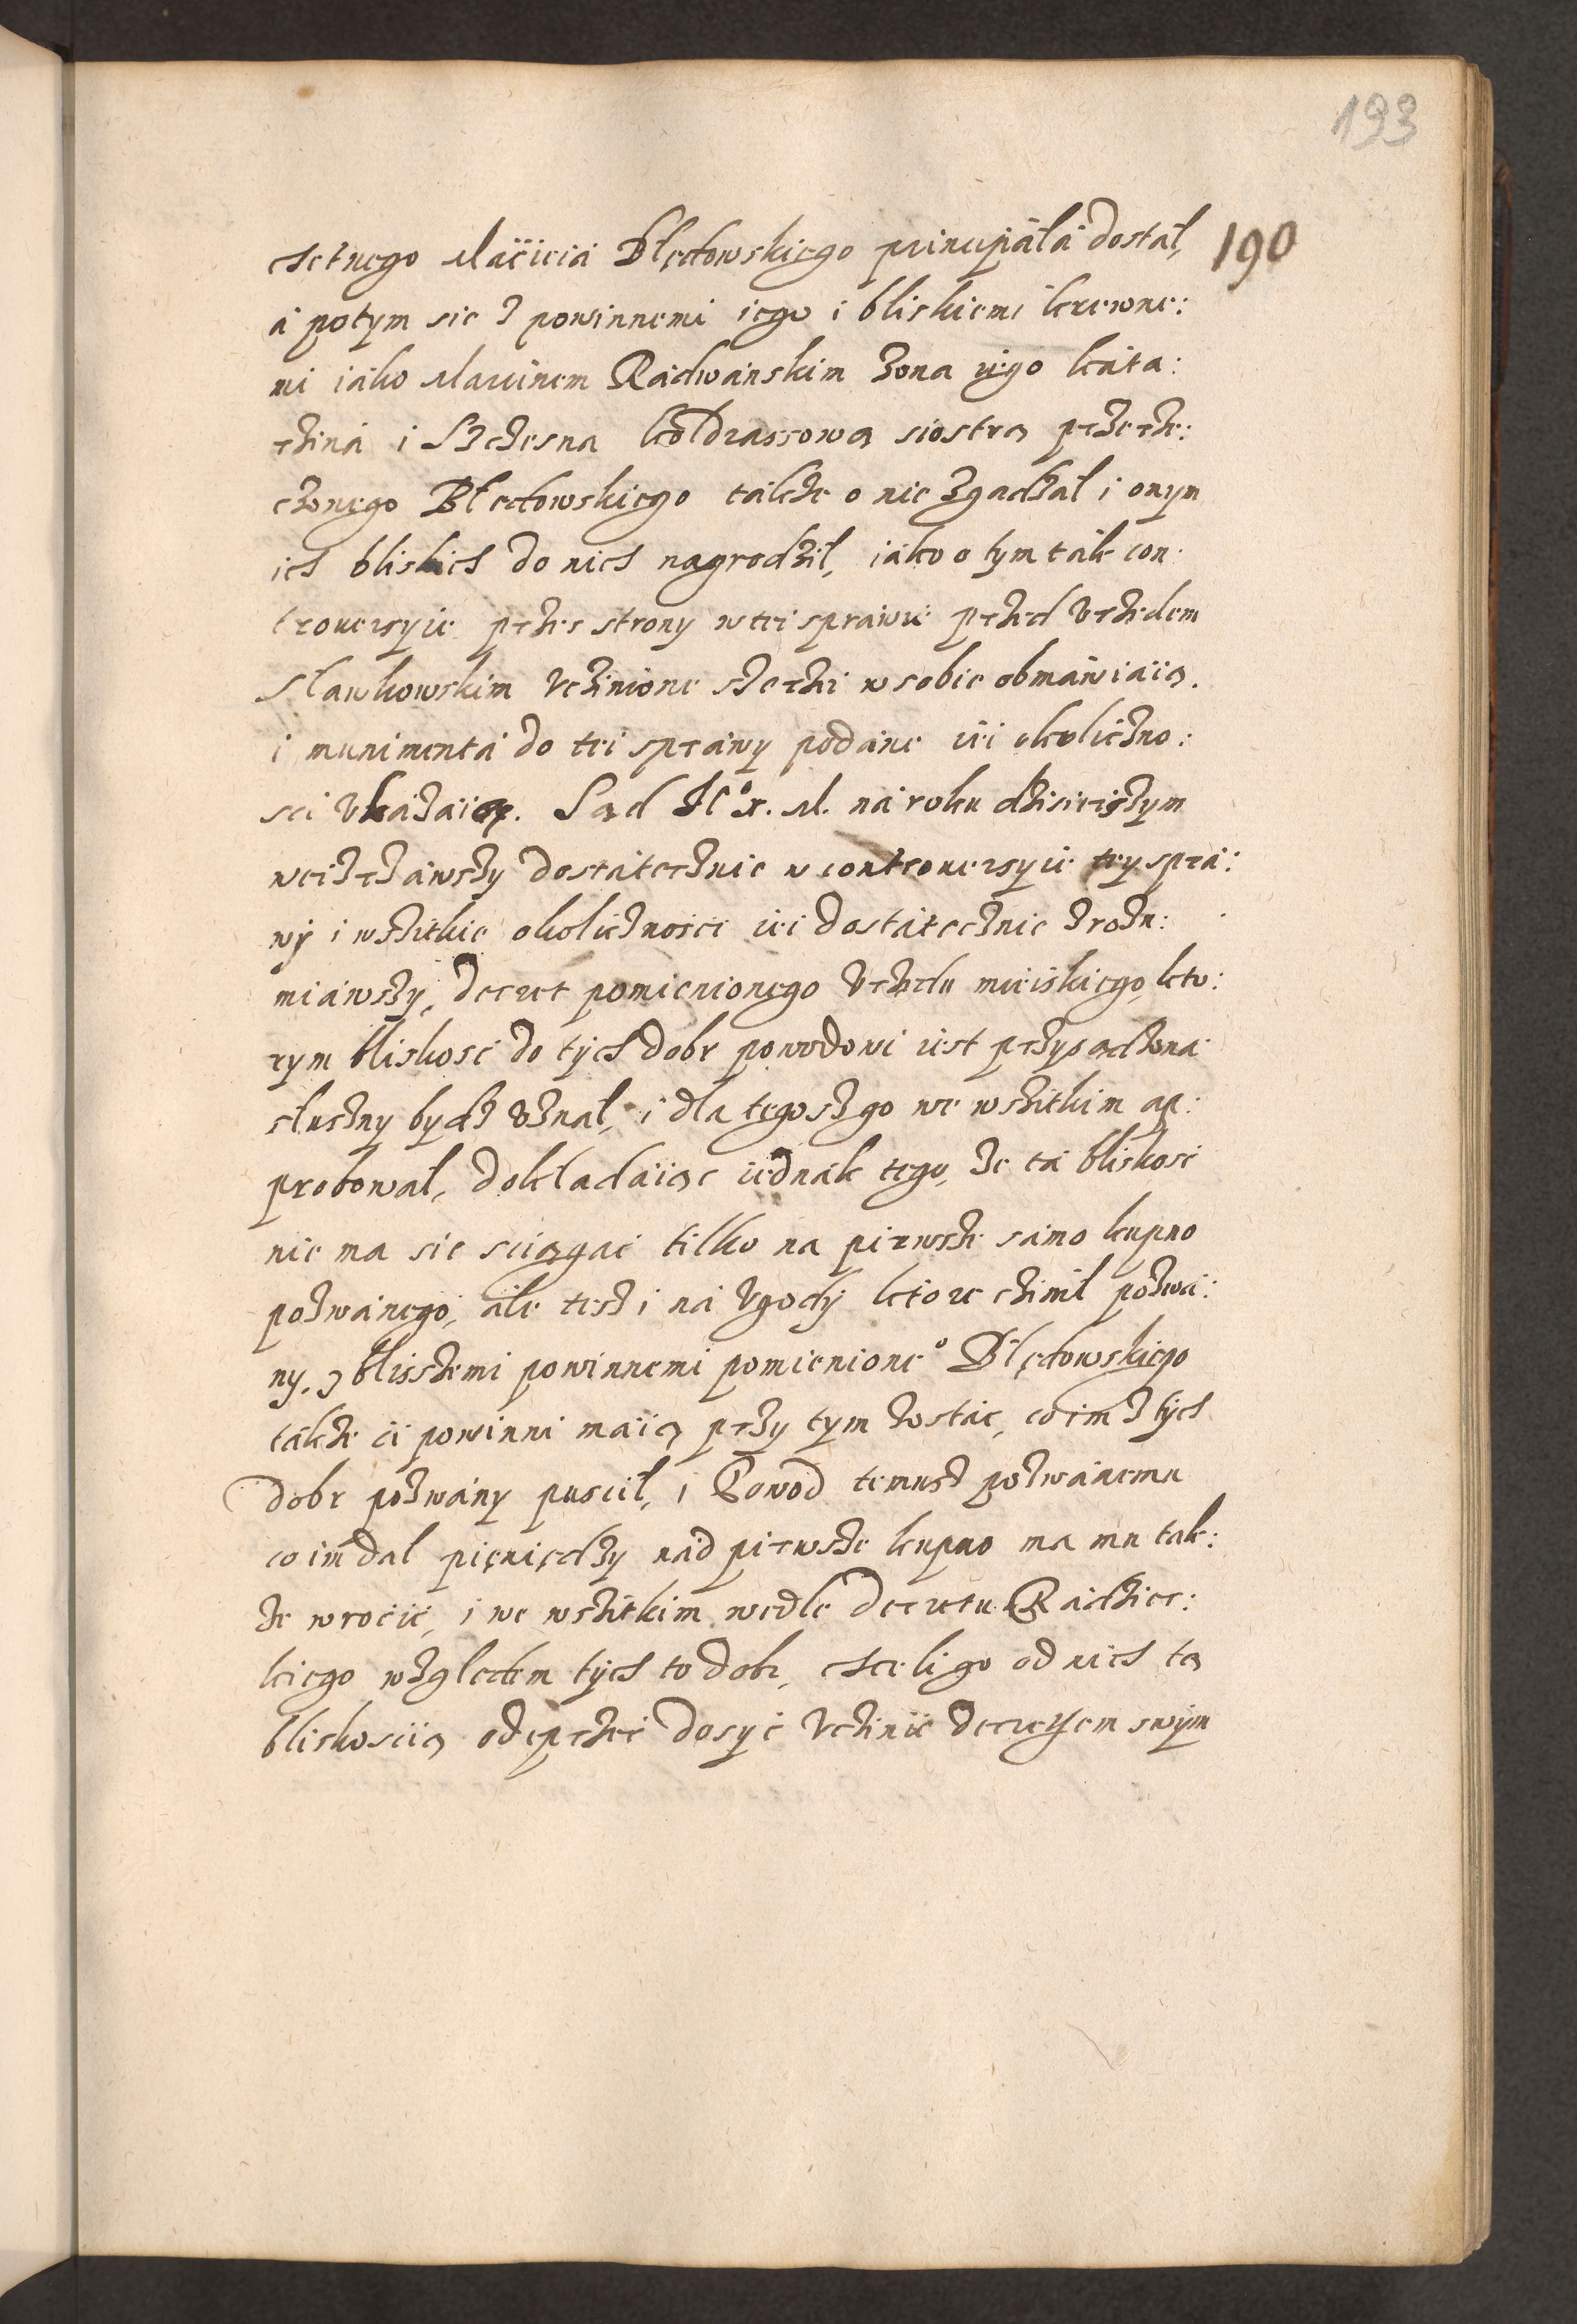 193
chetnego Macieia Błędowskięgo principała dostał, 190
á potym sie z powinnemi iego i bliskiemi krewne:
mi iáko Marcinem Rádwánskim Zona iego Káta:
rżiná i Szczesna Kołdrassowa siostrą przerze:
czonęgo Błedowskięgo tákże o nie zgadzał i onym
ich bliskich do nich nagrodził, iáko o tym ták con:
trouersyie przes strony w tei spráwie przed Vrzedem
Sławkowskim Vczinione szerzei w sobie obmáwiáią.
i munimentá do tei spráwy podáne iei okoliczno:
sci Vkázáią. Sąd J Kº x. M. ná roku dzisieiszym
weizrzáwszy dostátecznie w controuersyie tey sprá:
wÿ i wszitkie okolicznosci iei dostátecznie zrozu:
miáwszy, decret pomienionęgo Vrzedu mieiskięgo, kto:
rym bliskosc do tych dobr powodowi iest przysądzona
słuszny bydz Vznał, i dla tegosz go we wszitkim ap:
probował, dokładáiąc iednák tego, ze tá bliskosc
nie ma sie sciągac tilko na pierwsze sámo kupno
pozwánego, ále tesz i ná Vgody ktore czinił pozwá:
ny. z blisszemi powinnemi pomienioneº Błędowskięgo
tákze ci powinni máią przy tym zostác, co im z tych
dobr pozwány puscił, i Powod temusz pozwánemu
co im dał pięniędzy nád pierwsze kupno ma mu tak:
ze wrocic, i we wszitkim wedle decretu Rádziec:
kiego wzgledem tych to dobr, chceli go od nich tą
bliskoscią odeprzec dosyc Vczinic decreẏem swym